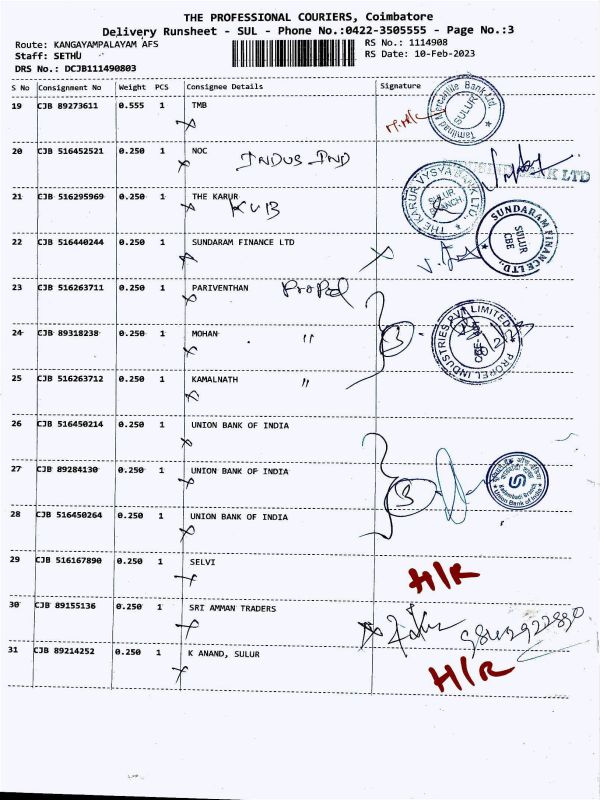 THE PROFESSIONAL COURIERS, Coimbatore
Delivery Runsheet - SUL - Phone No.:0422-3505555 - Page No.:3
Route: KANGAYAMPALAYAM AFS
RS No.: 1114908
Staff: SETHU
RS Date: 10-Feb-2023
DRS No.: DCJB111490803
S No Consignment No Weight PCS Consignee Details Signature
19 CJB 89273611 0.555 1 TMB
Tamilnad Mercantile Bank Ltd. SULUR
20 CJB 516452521 0.250 1 NOC INDUS IND
BANK LTD
21 CJB 516295969 0.250 1 THE KARUR
KVB
THE KARUR VYSYA BANK LTD. SULUR BRANCH
22 CJB 516440244 0.250 1 SUNDARAM FINANCE LTD
SUNDARAM FINANCE LTD., SULUR CBE
23 CJB 516263711 0.250 1 PARIVENTHAN Propel
24 CJB 89318238 0.250 1 MOHAN " 3
PROPEL INDUSTRIES PVT LIMITED
25 CJB 516263712 0.250 1 KAMALNATH "
26 CJB 516450214 0.250 1 UNION BANK OF INDIA
27 CJB 89284130 0.250 1 UNION BANK OF INDIA 3
Union Bank of India
28 CJB 516450264 0.250 1 UNION BANK OF INDIA
29 CJB 516167890 0.250 1 SELVI H/R
30 CJB 89155136 0.250 1 SRI AMMAN TRADERS
31 CJB 89214252 0.250 1 K ANAND, SULUR H/R